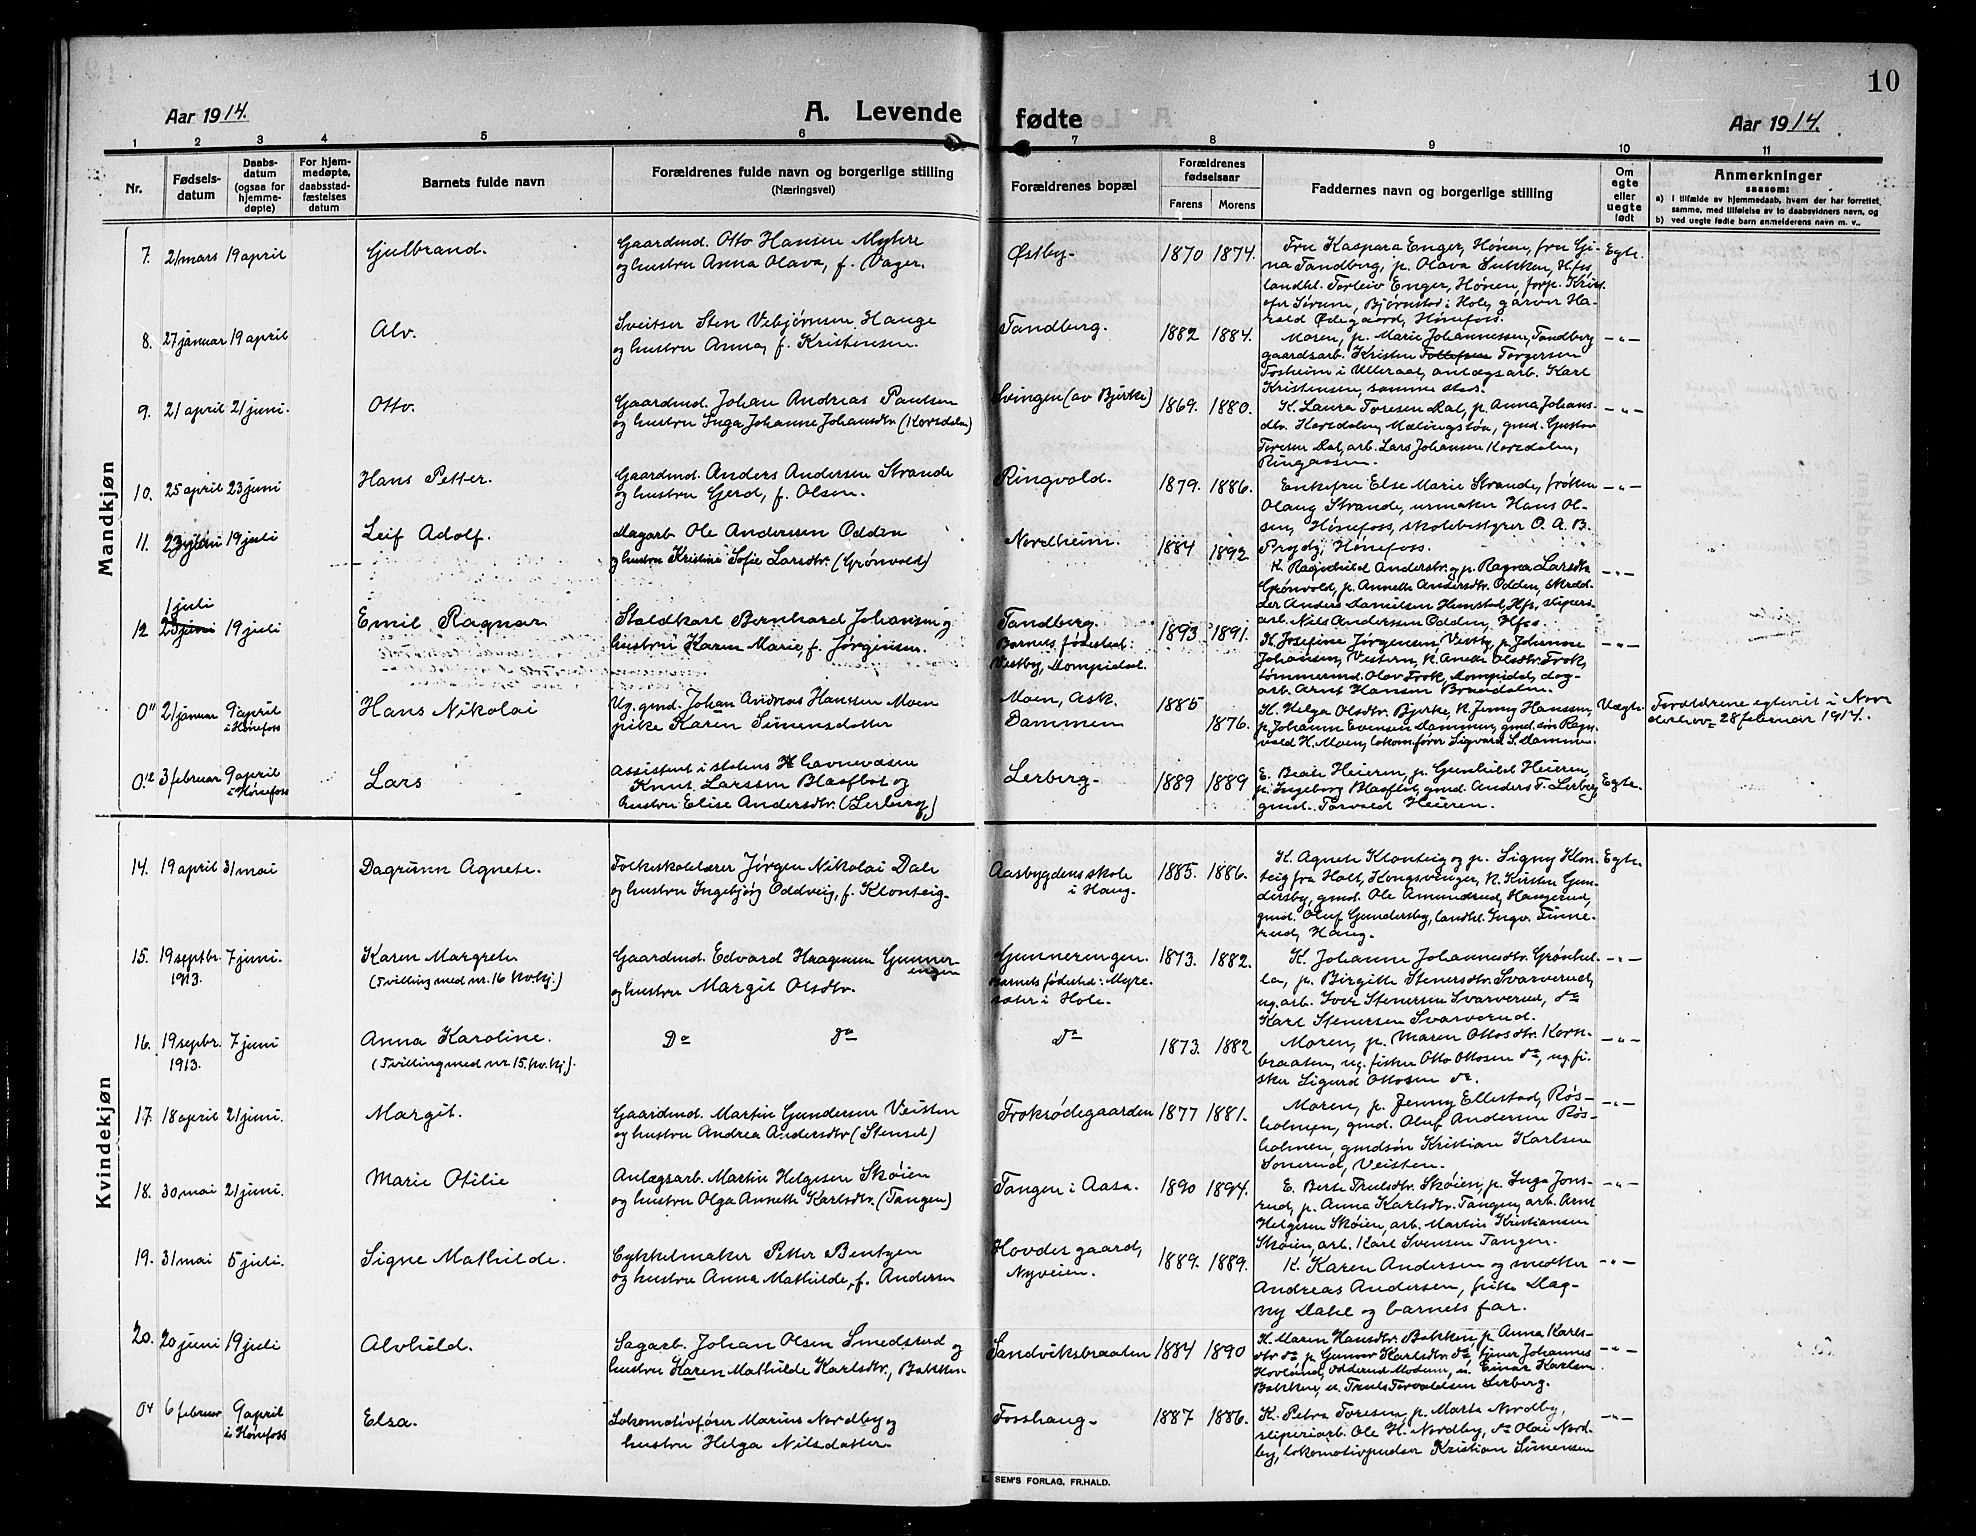 10
Aar 1914. A. Levende fødte Aar 1914.
1 2 3 4 5 6 7 8 9 10 11
Nr.
Fødselsdatum
Daabsdatum (ogsaa for hjemmedøpte)
For hjemmedøpte, daabsstadfæstelses datum
Barnets fulde navn
Forældrenes fulde navn og borgerlige stilling
(Næringsvei)
Forældrenes bopæl
Forældrenes fødselsaar
Farens Morens
Faddernes navn og borgerlige stilling
Om egte eller uegte født
Anmerkninger
saasom:
a) I tilfælde av hjemmedaab, hvem der har forrettet samme, med tilføielse av to daabsvidners navn, og
b) ved uegte fødte barn anmelderens navn m. v..
Mandkjøn
7. 21 mars 19 april Gulbrand. Gaardmd. Otto Hansen Myhre
og hustru Anna Olava, f. Vager.
Østby 1870 1874.
Fru Kaspara Enger, Hønen, fru Gi-
na Tandberg, p. Olava Sukken, Hfs,
landhl. Torleiv Enger, Hønen, forp. Krist
ofer Sørum, Bjørnstad i Hole, garver Ha-
rald Ødegaard, Hønefoss.
Egte.
8. 27 januar 19 april Alv. Sveitser Sten Vebjørnsen Hauge
og hustru Anna, f. Kristensen.
Tandberg. 1882 1884.
Moren, p. Marie Johannessen, Tandberg
gaardsarb. Kristen Torgersen
Fosheim i Ulleraal, anlægsarb. Karl
Kristensen, samme sted.
-"-
9. 21 april 21 juni. Otto. Gaardmd. Johan Andreas Paulsen
og hustru Inga Johanne Johansdtr (Korsdalen)
Svingen (av Bjerke) 1869. 1880.
K. Laura Toresen Dal, p. Anna Johans-
dtr. Korsdalen, gmd. Gustav
Toresen Dal, arb. Lars Johansen Korsdalen,
Ringaasen.
-"-
10. 25 april 23 juni Hans Petter. Gaardmd. Anders Andersen Strande
og hustru Gerd, f. Olsen.
Ringvold. 1879. 1886.
Enkefru Else Marie Strande, frøken
Olaug Strande, urmaker Hans Ol-
sen, Hønefoss, skolebestyrer O. A. B.
Prydz, Hønefoss.
-"-
11. 23 juni 19 juli Leif Adolf. Dagarb. Ole Andersen Odden
og hustru Kristine Sofie Larsdtr. (Grønvold)
Nordheim. 1884 1892
K. Ragnhild Andersdtr. og p. Ragna Larsdtr
Grønvold, p. Annette Andersdtr. Odden, skræd-
der Anders Danielsen Hemstad, Hfs, sliperi-
arb. Nils Andersen Odden, Hfss.
-"-
12 1 juli 19 juli Emil Ragnar Staldkarl Bernhard Johansen og
hustru Karen Marie, f. Jørgensen.
Tandberg.
Barnets fødested:
Vestby, Lompidal.
1893 1891.
K. Josefine Jørgensen, Vestby, p. Johanne
Johansen, Vestern, K. Anette Olsdtr. Trok,
tømmermd. Olav Trok, Lompidal, dag-
arb. Arnt Hansen Braadalen.
-"-
0" 21 januar 9 april i Hønefoss Hans Nikolai Ug. gmd. Johan Andreas Hansen Moen
pike Karen Simensdatter
Moen, Ask.
Dammen
1885 1876.
K. Helga Olsdtr. Bjerke, K. Jenny Hansen,
p. Johanne Evensen Dammen, gmd.søn Rag-
vald H. Moen, lokom.fører Sigvard S. Dammen
Uegte. Forældrene egteviet i Nor
derhov 28 februar 1914.
0.12 3 februar 9 april i Hønefoss Lars Assistent i statens Havnevæsen
Knut Larssen Blaaflat og
hustru Elise Andersdtr. (Lerberg)
Lerberg 1889 1889
E. Beate Heieren, p. Gunhild Heieren,
p. Ingeborg Blaaflat, gmd. Anders T. Lerberg,
gmd. Torvald Heieren.
Egte.
Kvindekjøn
14. 19 april 31 mai Dagrunn Agnete. Folkeskolelærer Jørgen Nikolai Dale
og hustru Ingebjørg Oddveig, f. Klonteig.
Aasbygdens skole
i Haug.
1885. 1886.
K. Agnete Klonteig og p. Signy Klon-
teig fra Holt, Kongsvinger, K. Kirsten Gun-
dersby, gmd. Ole Amundrud, Haugerud,
gmd. Oluf Gundersby, landhl. Ingv. Finne-
rud, Haug.
Egte
15. 19 septbr. 1913. 7 juni. Karen Margrete
(Tvilling med nr. 16 kv.kj.)
Gaardmd. Edvard Haagensen Gunner
engen
og hustru Margit Olsdtr.
Gunnerengen.
Barnets fødested: Myre-
sæter i Hole.
1873. 1882.
K. Johanne Johannesdtr. Grønhel-
la, p. Birgitte Stenersdtr. Svarverud,
ug. arb. Iver Stenersen Svarverud, do
Karl Stenersen Svarverud.
-"-
16. 19 septbr. 1913. 7 juni Anna Karoline.
(Tvilling med nr. 15. kv.kj.)
Do do
do
1873. 1882
Moren, p. Maren Ottosdtr. Korn-
braaten, ug. fisker Otto Ottosen do, ug. fi-
sker Sigurd Ottosen do.
-"-
17. 18 april 21 juni. Margit. Gaardmd. Martin Gundersen Veisten
og hustru Andrea Andersdtr (Stenset)
Froksrødegaarden 1877 1881.
Moren, p. Jenny Ellestad, Røs-
holmen, gmd. Oluf Andersen Røs-
holmen, gmdsøn Kristian Karlsen
Sonerud, Veisten.
-"-
18. 30 mai 21 juni. Marie Otilie Anlægsarb. Martin Helgesen Skøien
og hustru Olga Annette Karlsdtr. (Tangen)
Tangen i Aasa. 1890 1894.
E. Berte Trulsdtr. Skøien, p. Inga Jons-
rud, p. Anna Karlsdtr. Tangen, arb. Arnt
Helgesen Skøien, arb. Martin Kristiansen
Skøien, arb. Karl Svensen Tangen.
-"-
19. 31 mai 5 juli. Signe Mathilde. Cykkelmaker Petter Bentzen
og hustru Anna Mathilde, f. Andersen
Hovdes gaard,
Nyveien.
1889. 1889.
K. Karen Andersen og snedker
Andreas Andersen, frøken Dag-
ny Dahl og barnets far.
-"-
20. 20 juni 19 juli Alvhild. Sagarb. Johan Olsen Smedsrud og
hustru Karen Mathilde Karlsdtr., Bakken
Sandviksbraaten 1884 1890
K. Maren Hansdtr. Bakken, p. Anna Karls-
dtr do, p. Gunvor Karlsdtr. do, tjener Johannes
Hovland, Odderud Modum, u. Einar Karlsen
Bakken, u. Truls Torvaldsen Lerberg.
-"-
04 6 februar 9 april i Hønefoss Elsa. Lokomotivfører Marius Nordby og
hustru Helga Nilsdatter.
Fosshaug 1887 1886.
K. Petra Toresen, p. Marta Nordby,
sliperiarb. Ole H. Nordby, do Olai Nord-
by, lokomotivpudser Kristian Simensen
-"-
E. SEM'S FORLAG, FR.HALD.